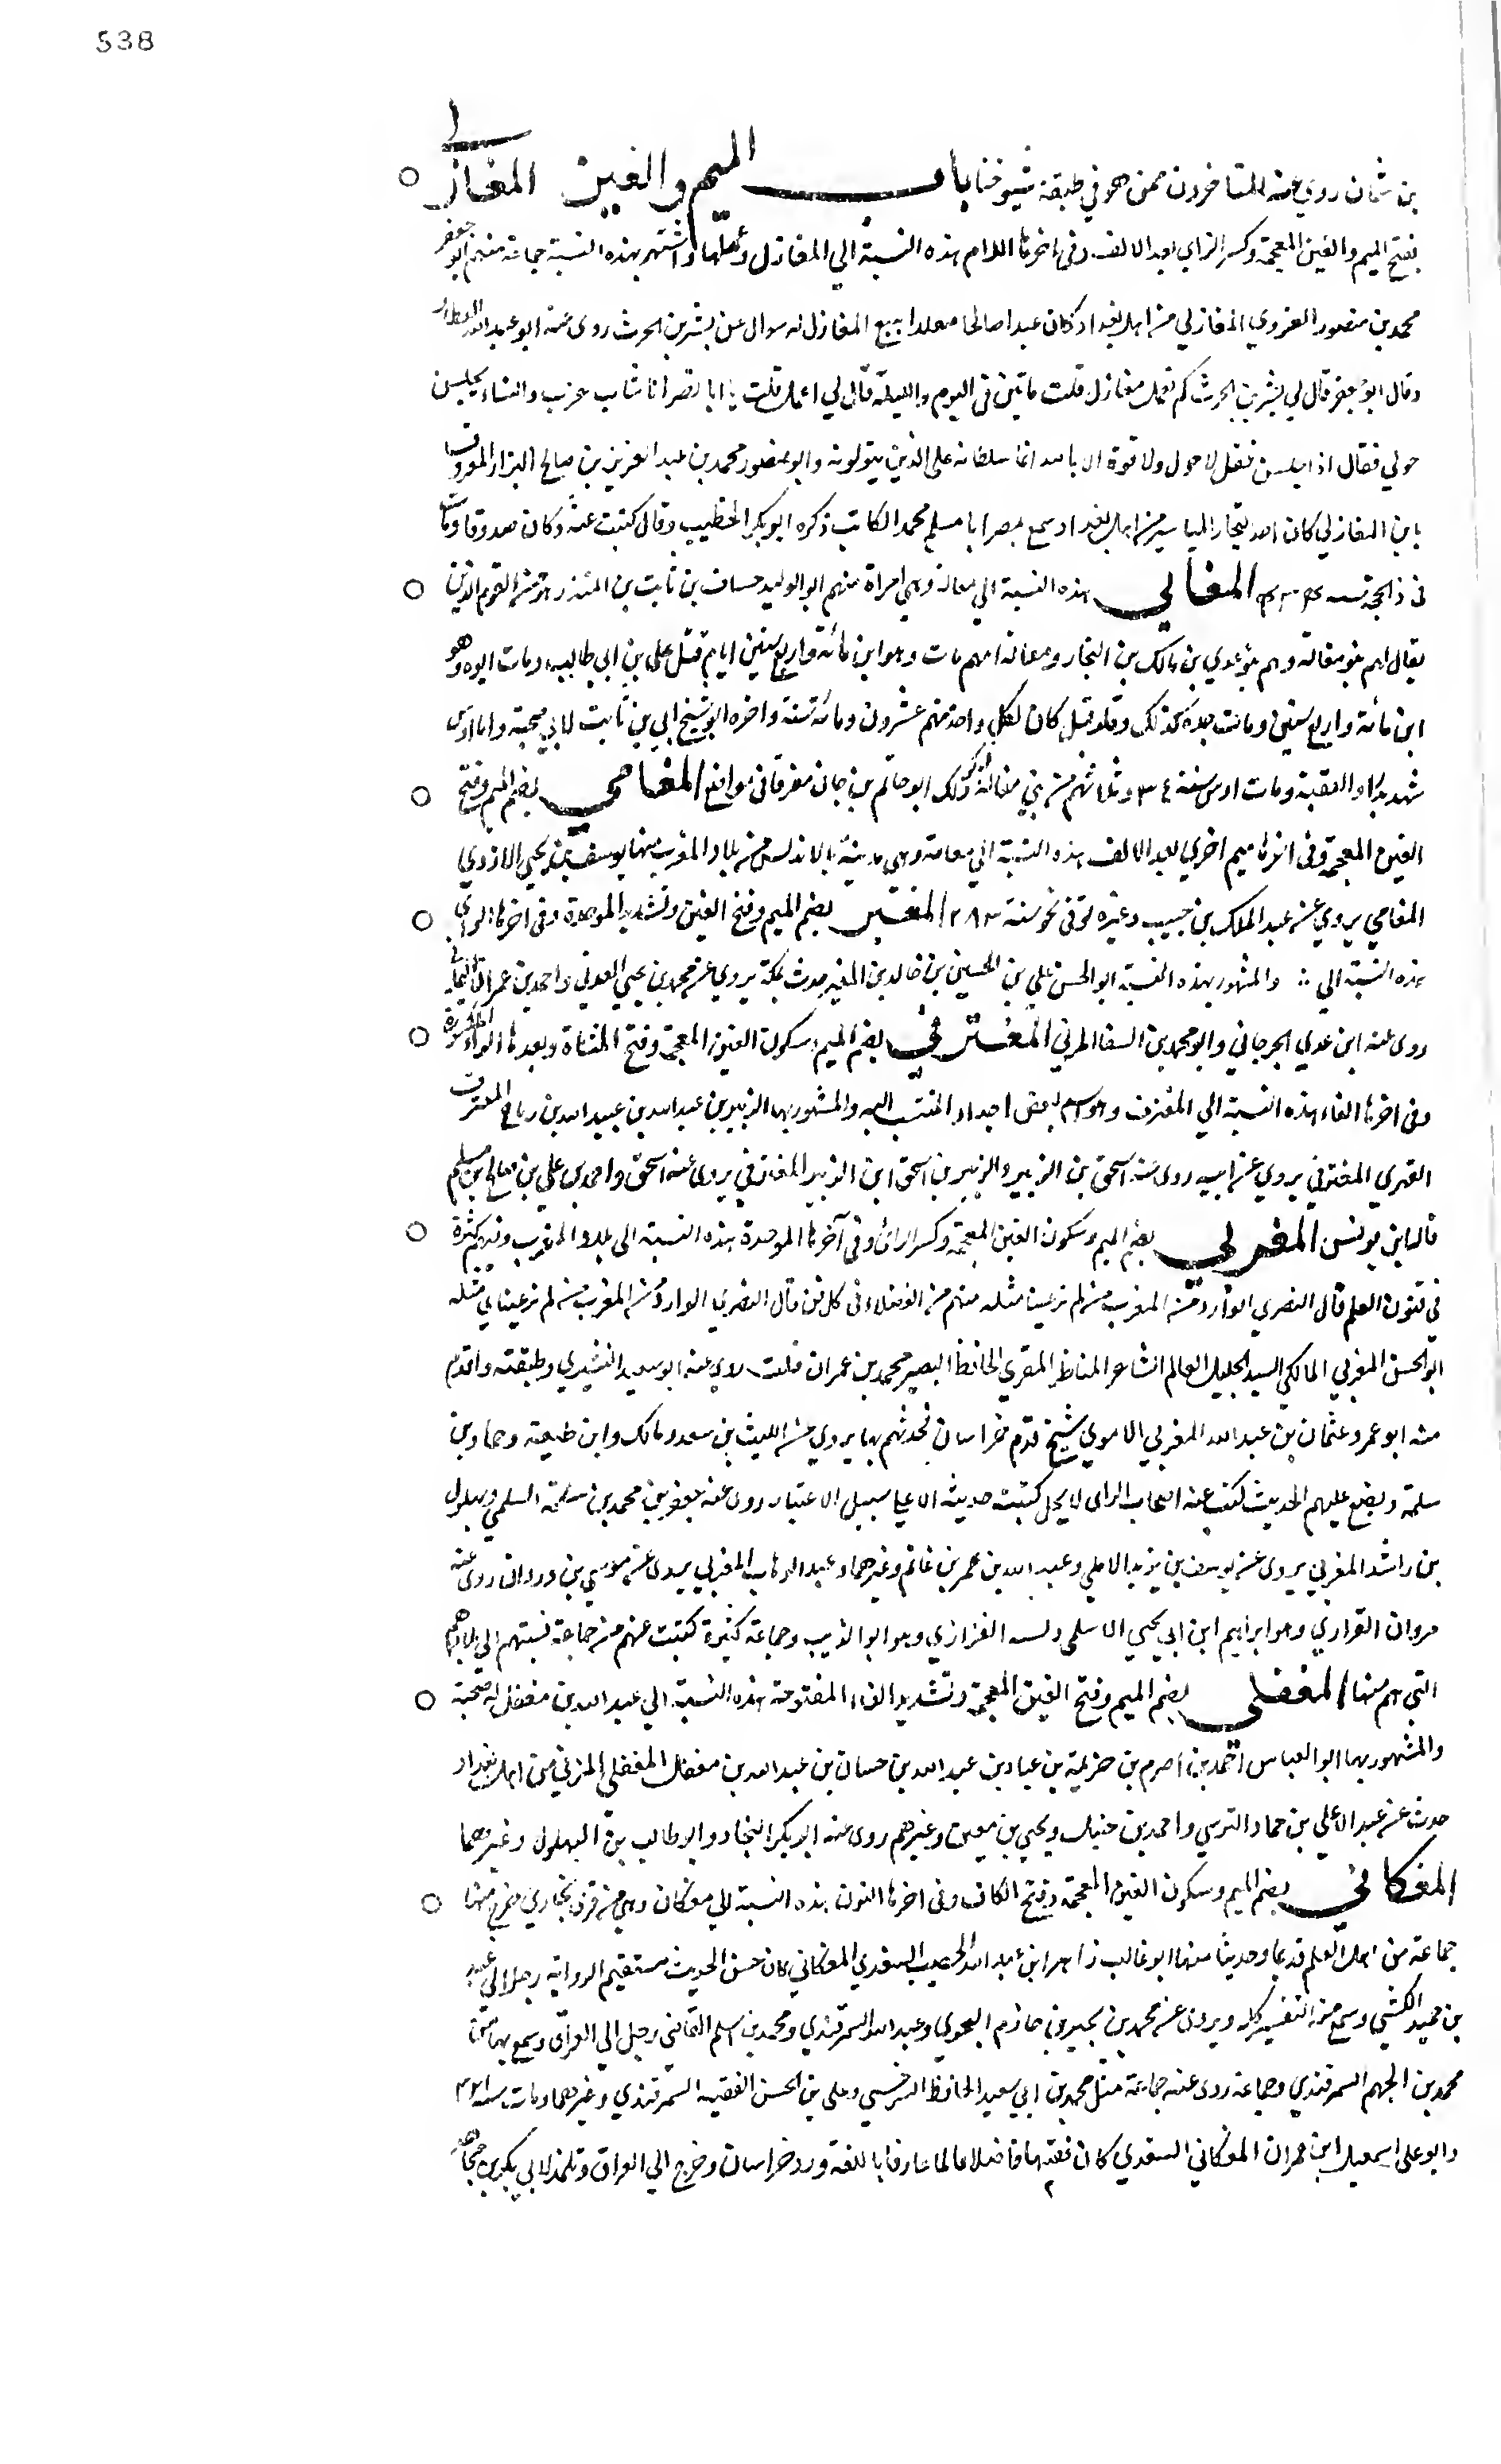 538
بن شمان روي عنه المتاخرون ممن هو في طبقة شيوخنا باب الميم والغين المغازلي
بفتح الميم والغين المعجمة وكسر الزاي بعد الالف وفي اخرها اللام هذه النسبة الي المغازل وعملها واشتهر بهذه النسبة جماعة منهم ابو جعفر
محمد بن منصور الفروي المغازلي من اهل بغداد كان عبدا صالحا مقلدا يبيع المغازل له سوال عن بشر بن الحرث روى عنه ابو عبد الله العطار
وقال ابو جعفر قال لي بشر بن الحرث كم تعمل مغازل قلت مأتين في اليوم والليلة قال لي اعمل قلت يا ابا نصر انا شاب عزب والنساء يجلسن
حولي فقال اذا جلسن فقل لا حول ولا قوة الا بالله انما سلطانه على الذين يتولونه وابو منصور محمد بن عبد العزيز بن صالح البزار المعروف
بابن المغازلي كان احد التجار المياسير من اهل بغداد سمع بمصر ابا مسلم محمد الكاتب ذكره ابو بكر الخطيب وقال كتبت عنه وكان صدوقا ومات
في ذي الحجة سنه المغالي هذه النسبة الي مغالة وهي امراة منهم ابو الوليد حسان بن ثابت بن المنذر هو من القوم الذين
يقال لهم بنو مغالة وهم بنو عدي بن مالك بن النجار ومغالة امهم مات وهو ابن مائة واربع سنين ايام قتل علي بن ابي طالب ومات ابوه وهو
ابن مائة واربع سنين ومات جده كذلك وقد قيل كان لكل واحد منهم عشرون ومائة سنة واخوه ابو شيخ ابي بن ثابت لابي صحبة واما اوس
شهد بدرا والعقبة ومات اوس سنة ٣٤ وثلاثتهم من بني مغالة ذكر ذلك ابو حاتم بن حبان مفرقا في مواضع المغامي بضم الميم وفتح
الغين المعجمة وفي اخرها ميم اخري بعد الالف هذه النسبة الي مغامة وهي مدينة بالاندلس من بلاد المغرب منها يوسف بن يحيي الازدي
المغامي يروي عن عبد الملك بن حبيب وغيره توفي نحو سنة ٢٨٣ المغبر بضم الميم وفتح الغين وتشديد الموحدة وفي اخرها الراي
هذه النسبة الي : والمشهور بهذه النسبة ابو الحسن علي بن الحسين بن خالد بن المغبر حدث بمكة يروي عن محمد بن يحيي العدني واحمد بن عمران اليماني
روى عنه ابن عدي الجرجاني وابو محمد بن السقا المزني المغترفي بضم الميم وسكون الغين المعجمة وفتح المثناة وبعدها الراء المكسورة
وفي اخرها الفاء هذه النسبة الي المغترف وهو اسم لبعض اجداد المنتسب اليه والمشهور بها الزبير بن عبد الله بن عبيد الله بن رباح المغترف
الفهري المغترفي يروي عن ابيه روى عنه اسحق بن الزبير والزبير بن اسحق ابن الزبير المغترفي يروى عنه اسحق واحمد بن علي بن صالح بن مسلم
قاله ابن يونس المغربي بضم الميم وسكون الغين المعجمة وكسر الراء وفي آخرها الموحدة هذه النسبة الي بلاد المغرب وفيهم كثرة
في فنون العلم قال النصري الوارد من المغرب من لم تر عينا مثله منهم من الفضلاء في كل فن قال النصري الوارد من المغرب من لم تر عيناي مثله
ابو الحسن المغربي المالكي السيد الجليل العالم الشاعر المناظر المقري الحافظ البصير محمد بن عمران قلت روى عنه ابو سعيد القشيري وطبقته واقدم
منه ابو عمرو عثمان بن عبد الله المغربي الاموي شيخ قدم خراسان فحدثهم بها يروي عن الليث بن سعد ومالك وابن لهيعة وحماد بن
سلمة ويضع عليهم الحديث كتب عنه اصحاب الراي لا يحل كتبت حديثه الا علي سبيل الاعتبار روى عنه جعفر بن محمد بن سلمة السلمي وبهلول
بن راشد المغربي يروى عن يوسف بن يزيد الايلي وعبد الله بن عمر بن غانم وغيرهما وعبد الوهاب المغربي يروى عن موسي بن وردان روى عنه
مروان الفزاري وهو ابراهيم ابن ابي يحيي الاسلمي دلسه الفزازي وهو ابو الذيب وجماعة كثيرة كتبت عنهم من جماعة نسبتهم الي بلادهم
التي هم منها المغفلي بضم الميم وفتح الغين المعجمة وتشديد الفاء المفتوحة هذه النسبة الي عبد الله بن مغفل له صحبة
والمشهور بها ابو العباس احمد بن اصرم بن خزيمة بن عباد بن عبد الله بن حسان بن عبد الله بن مغفل المغفلي المزني من اهل بغداد
حدث عن عبد الاعلي بن حماد النرسي واحمد بن حنبل ويحيي بن معين وغيرهم روى عنه ابو بكر النجاد وابو طالب بن البهلول وغيرهما
المغكاني بضم الميم وسكون الغين المعجمة وفتح الكاف وفي اخرها النون هذه النسبة الي مغكان وهي من قرى بخاري خرج منها
جماعة من اهل العلم قديما وحديثا منها ابو غالب زاهر ابن عبد الله الخصيب السغدي المغكاني كان حسن الحديث مستقيم الرواية رحل الي عبد
بن حميد الكشي وسمع منه التفسير كله ويروى عن محمد بن بجير بن حازم البجيري وعبد الله السمرقندي ومحمد بن اسلم القاضي رحل الي العراق وسمع بها من
محمد بن الجهم السمرقندي وجماعة روى عنه جماعة مثل محمد بن ابي سعيد الحافظ السرخسي وعلي بن الحسن الفقيه السمرقندي وغيرهما ومات سنه
وابو علي اسمعيل ابن عمران المغكاني السغدي كان فقيها فاضلا عالما عارفا باللغة ورد خراسان وخرج الي العراق وتلمذ لابي بكر بن مجاهد